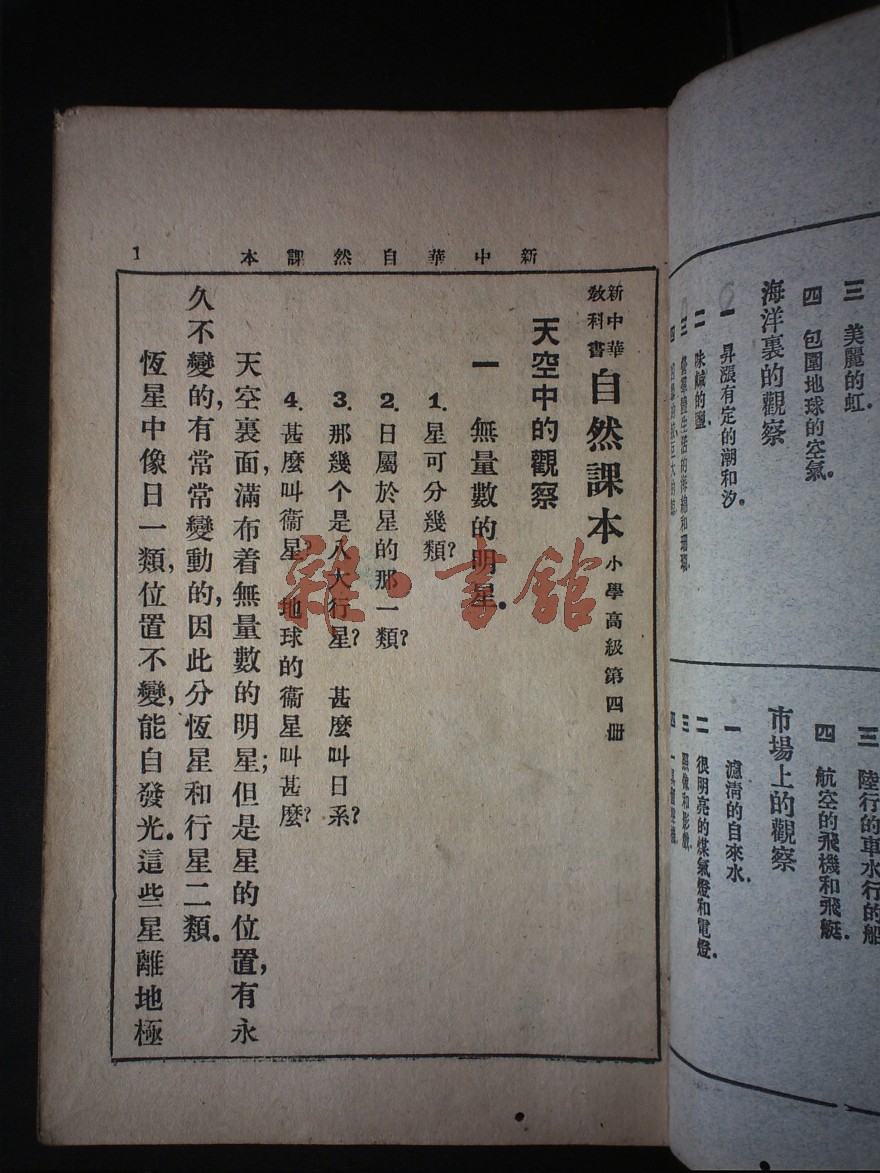 三 美麗的虹.
四 包圍地球的空氣.
海洋裏的觀察
一 昇漲有定的潮和汐.
二 味鹹的鹽.
三 陸行的車水行的船
四 航空的飛機和飛艇.
市場上的觀察
一 濾清的自來水.
二 很明亮的煤氣燈和電燈.
三 照像和影戲.
新中華自然課本
1
新中華教科書 自然課本 小學高級第四冊
天空中的觀察
一 無量數的明星.
1. 星可分幾類?
2. 日屬於星的那一類?
3. 那幾个是八大行星? 甚麼叫日系?
4. 甚麼叫衞星? 地球的衞星叫甚麼?
天空裏面,滿布着無量數的明星;但是星的位置,有永
久不變的,有常常變動的,因此分恆星和行星二類.
恆星中像日一類,位置不變,能自發光.這些星離地極
雜·書館